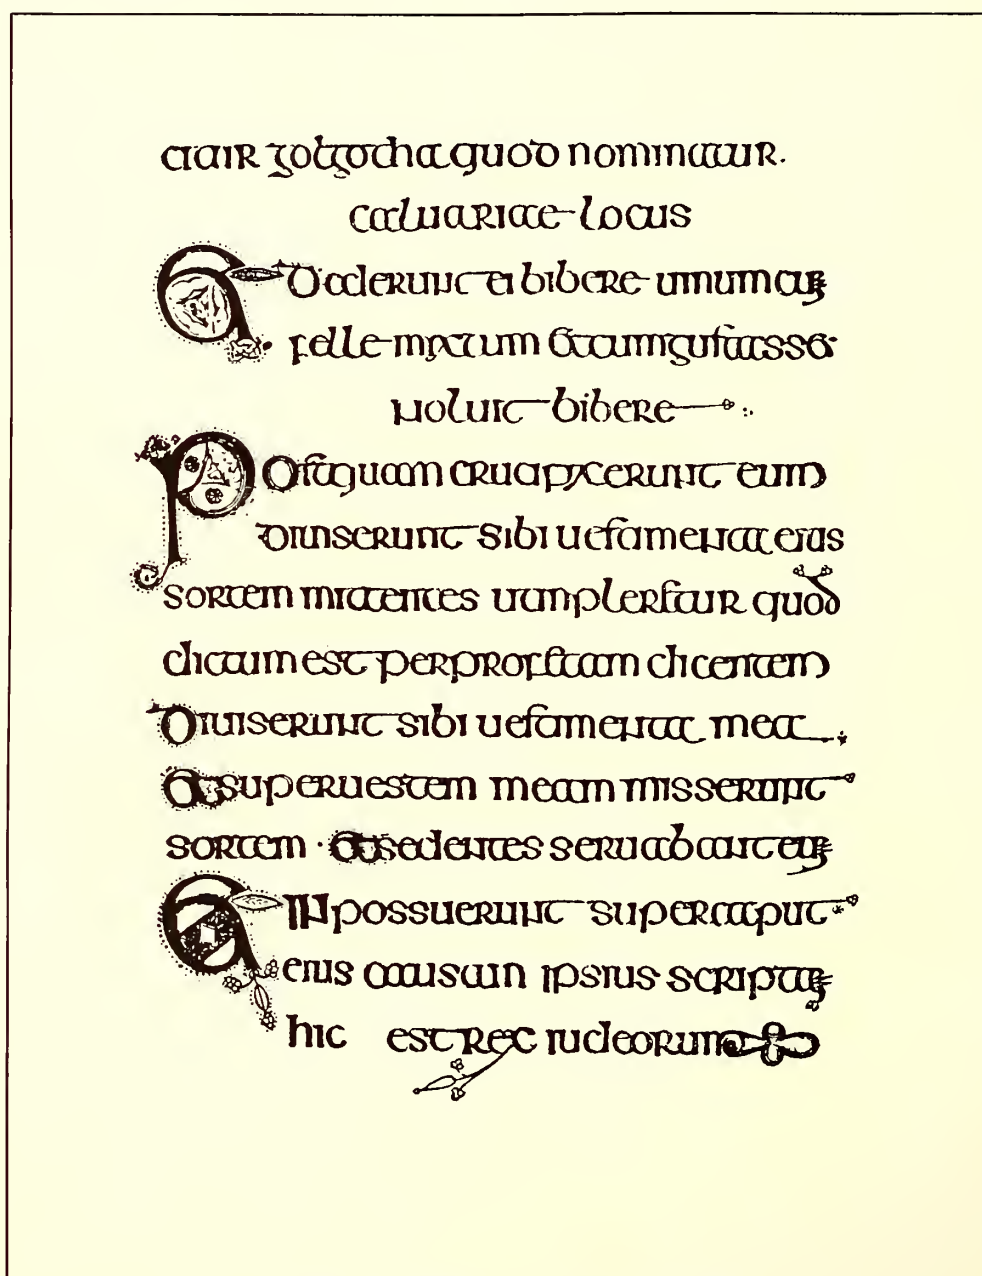 citur golgotha quod nominatur.
caluariae locus
Et dederunt ei bibere uinum cum
felle mixtum et cum gustasset
noluit bibere
Postquam crucifixerunt eum
diuiserunt sibi uestimenta eius
sortem mittentes ut inpleretur quod
dictum est per profetam dicentem
Diuiserunt sibi uestimenta mea
Et super uestem meam misserunt
sortem · Et sedentes seruabant eum
Et inpossuerunt super caput
eius causam ipsius scriptam
hic est rex iudeorum